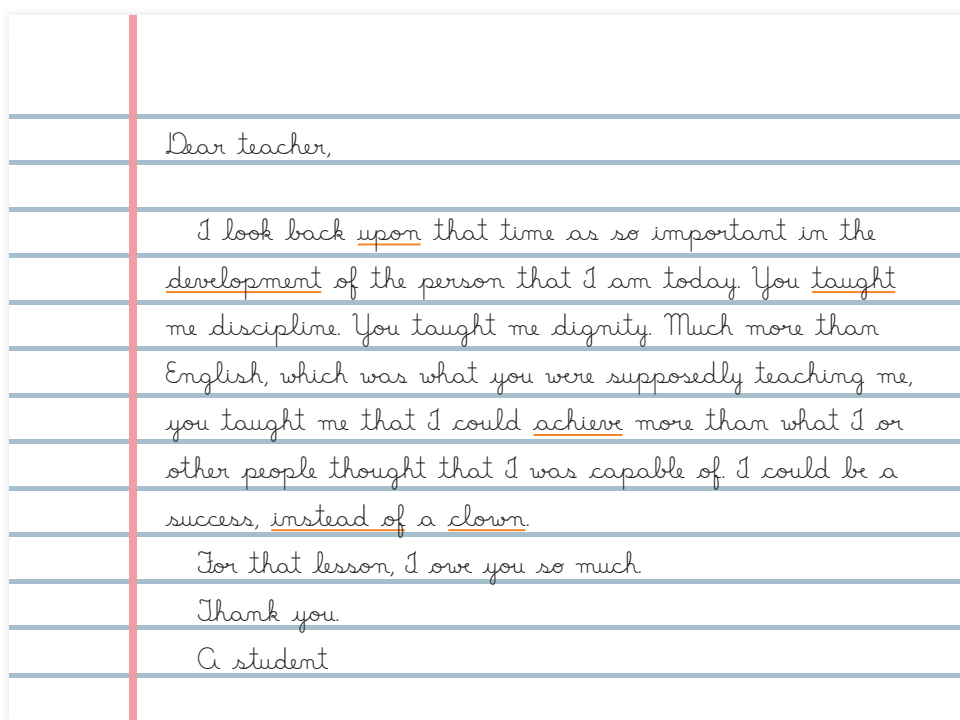 Dear teacher,
I look back upon that time as so important in the
development of the person that I am today. You taught
me discipline. You taught me dignity. Much more than
English, which was what you were supposedly teaching me,
you taught me that I could achieve more than what I or
other people thought that I was capable of. I could be a
success, instead of a clown.
For that lesson, I owe you so much.
Thank you.
A student